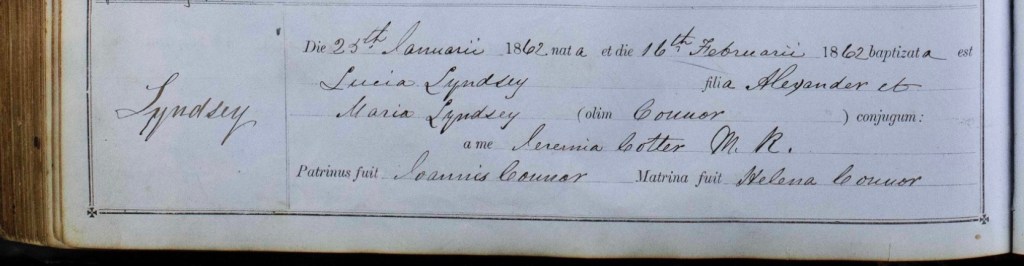 Die 25th Januarii 1862 nata et die 16th Februarii 1862 baptizata est
Lyndsey
Lucia Lyndsey filia Alexander et
Maria Lyndsey (olim Connor) conjugum:
a me Jeremia Cotter M. R.
Patrinus fuit Joannis Connor Matrina fuit Helena Connor